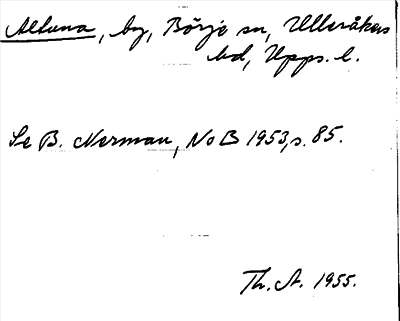 Altuna, by, Börje sn, Ulleråkers
hd, Upps. l.
Se B. Nerman, NoB 1953, s. 85.
Th. A. 1955.